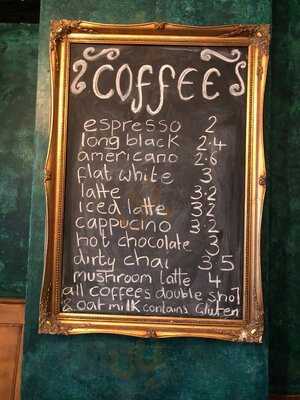 COFFEE
espresso 2
long black 2.4
americano 2.6
flat white 3
latte 3.2
iced latte 3.2
cappucino 3.2
hot chocolate 3
dirty chai 3.5
mushroom latte 4
all coffees double shot
& oat milk contains Gluten